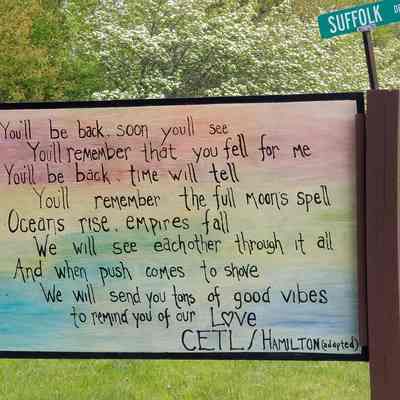 SUFFOLK DR
You'll be back. soon you'll see
You'll remember that you fell for me
You'll be back time will tell
You'll remember the full moon's spell
Oceans rise. empires fall
We will see eachother through it all
And when push comes to shove
We will send you tons of good vibes
to remind you of our Love
CETL / HAMILTON (adapted)